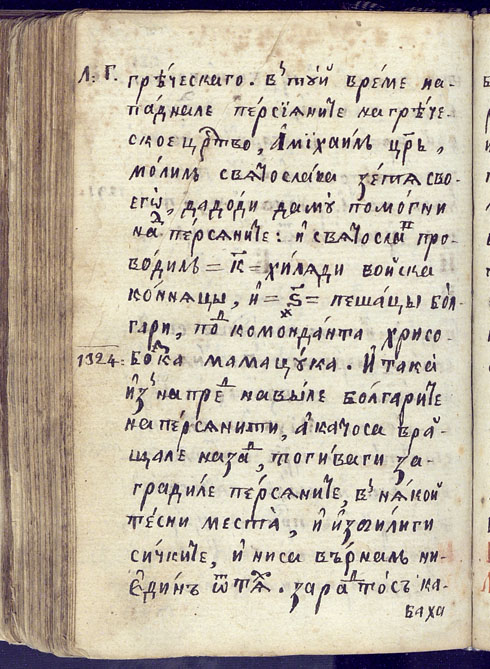 Л: Г. гре́ческаго. в' ту́й време на-
па́днале пе́рсїяните на гре́че-
ское црт҇во, А҆ мїхаилъ цр҃ь,
моли́лъ свѧ́тослава зе́тѧ сво-
его̀, да до́ди да му̀ помо́гни
над пе́рсѧните: и҆ свѧ́тославъ про-
води́лъ = к҃ = хи́ляди войска
ко́ннацы, и҆ = ѕ҃ = пеша́цы бо́л-
гари, под комонда́нта хрисо-
1324: бо́ка мамащу́ка. И҆ така̀
и҆з' напред навы́ле бо́лгарите
на пе́рсянити, а҆ като́са вра́-
щале наза́д, тоги́ваги за-
гради́ле пе́рсяните, в' нѧ́кой
те́сни места̀, и҆ и҆зби́лиги
си́чките, и҆ ни са въ́рналъ ни-
е҆ди́нъ ѿ тѧ́х. зарад то́съ ка-
баха